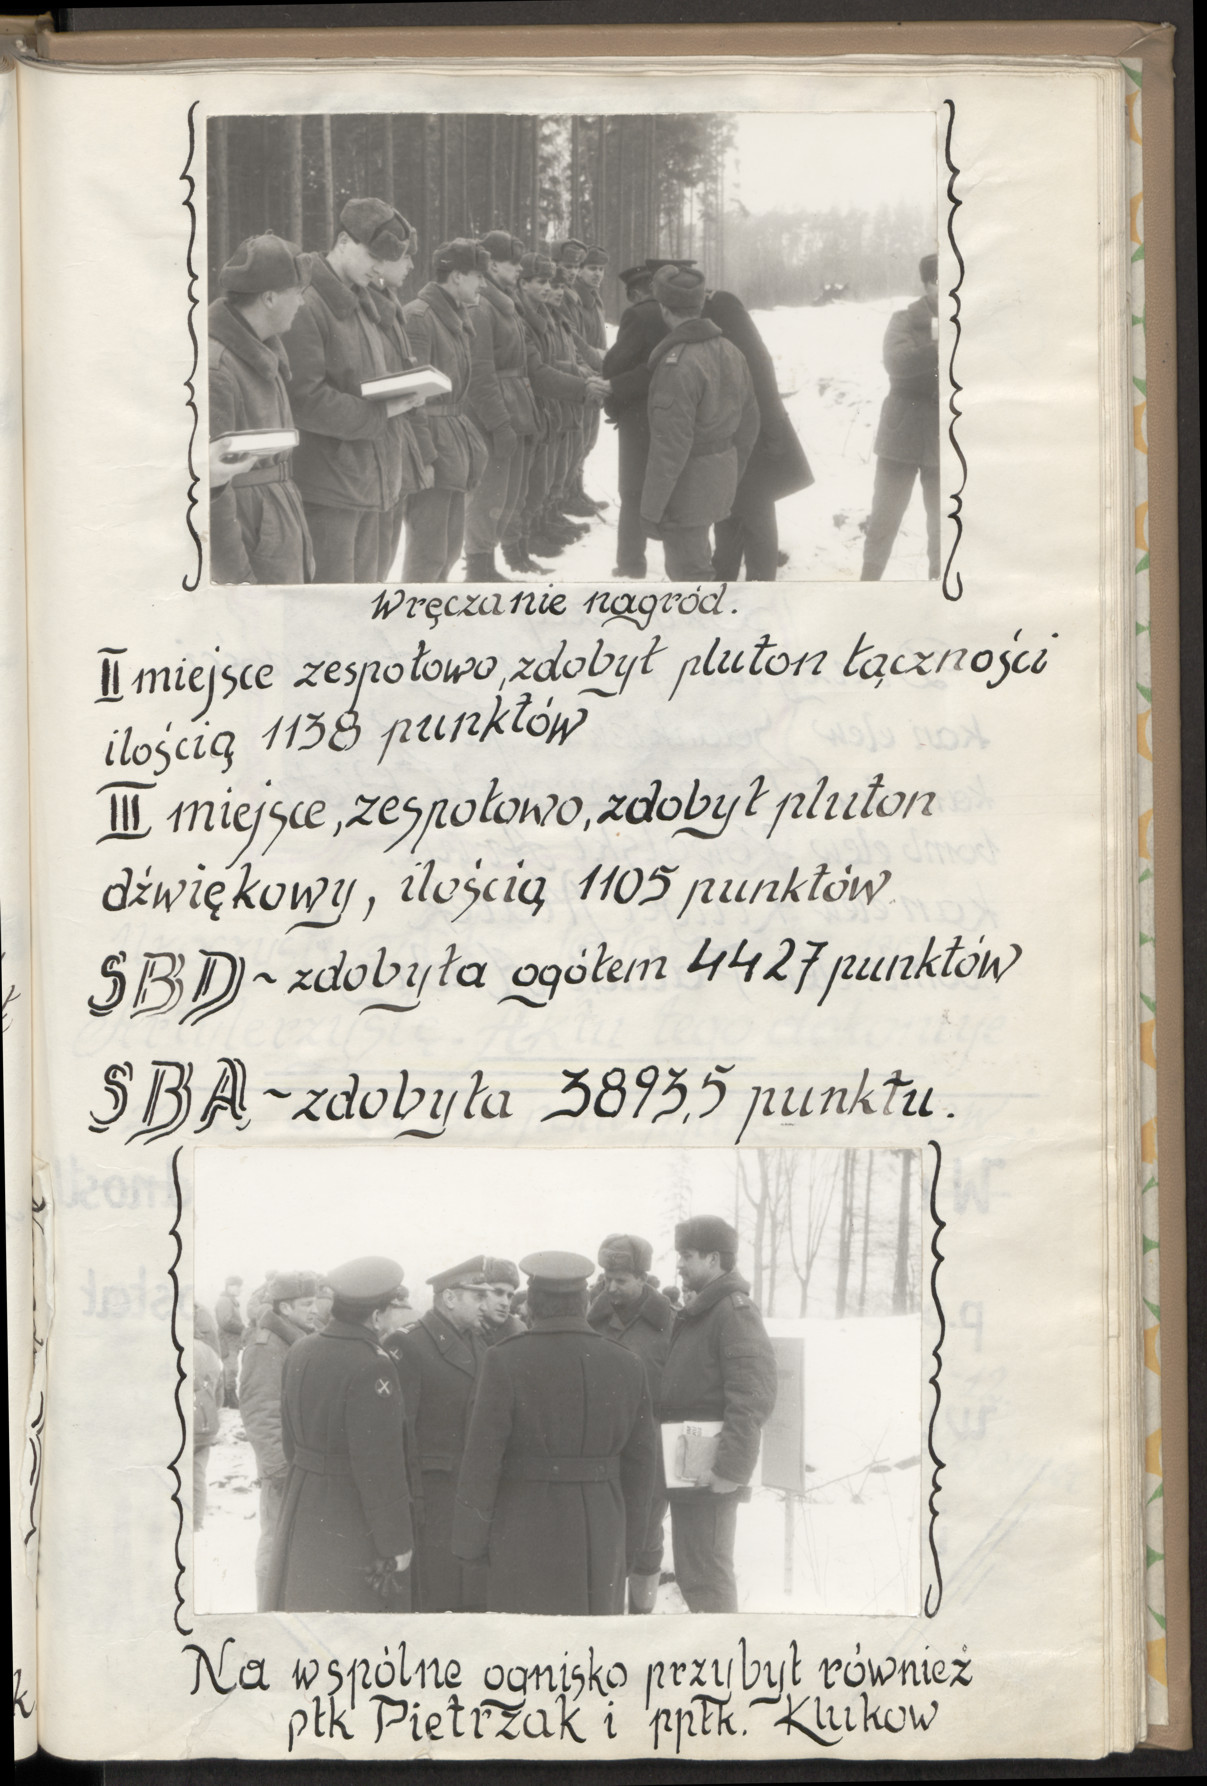 Wręczanie nagród.
II miejsce zespołowo, zdobył pluton łączności
ilością 1138 punktów
III miejsce, zespołowo, zdobył pluton
dźwiękowy, ilością 1105 punktów
SBD ~ zdobyła ogółem 4427 punktów
SBA ~ zdobyła 3893,5 punktu.
Na wspólne ognisko przybył również
płk Pietrzak i ppłk. Klukow